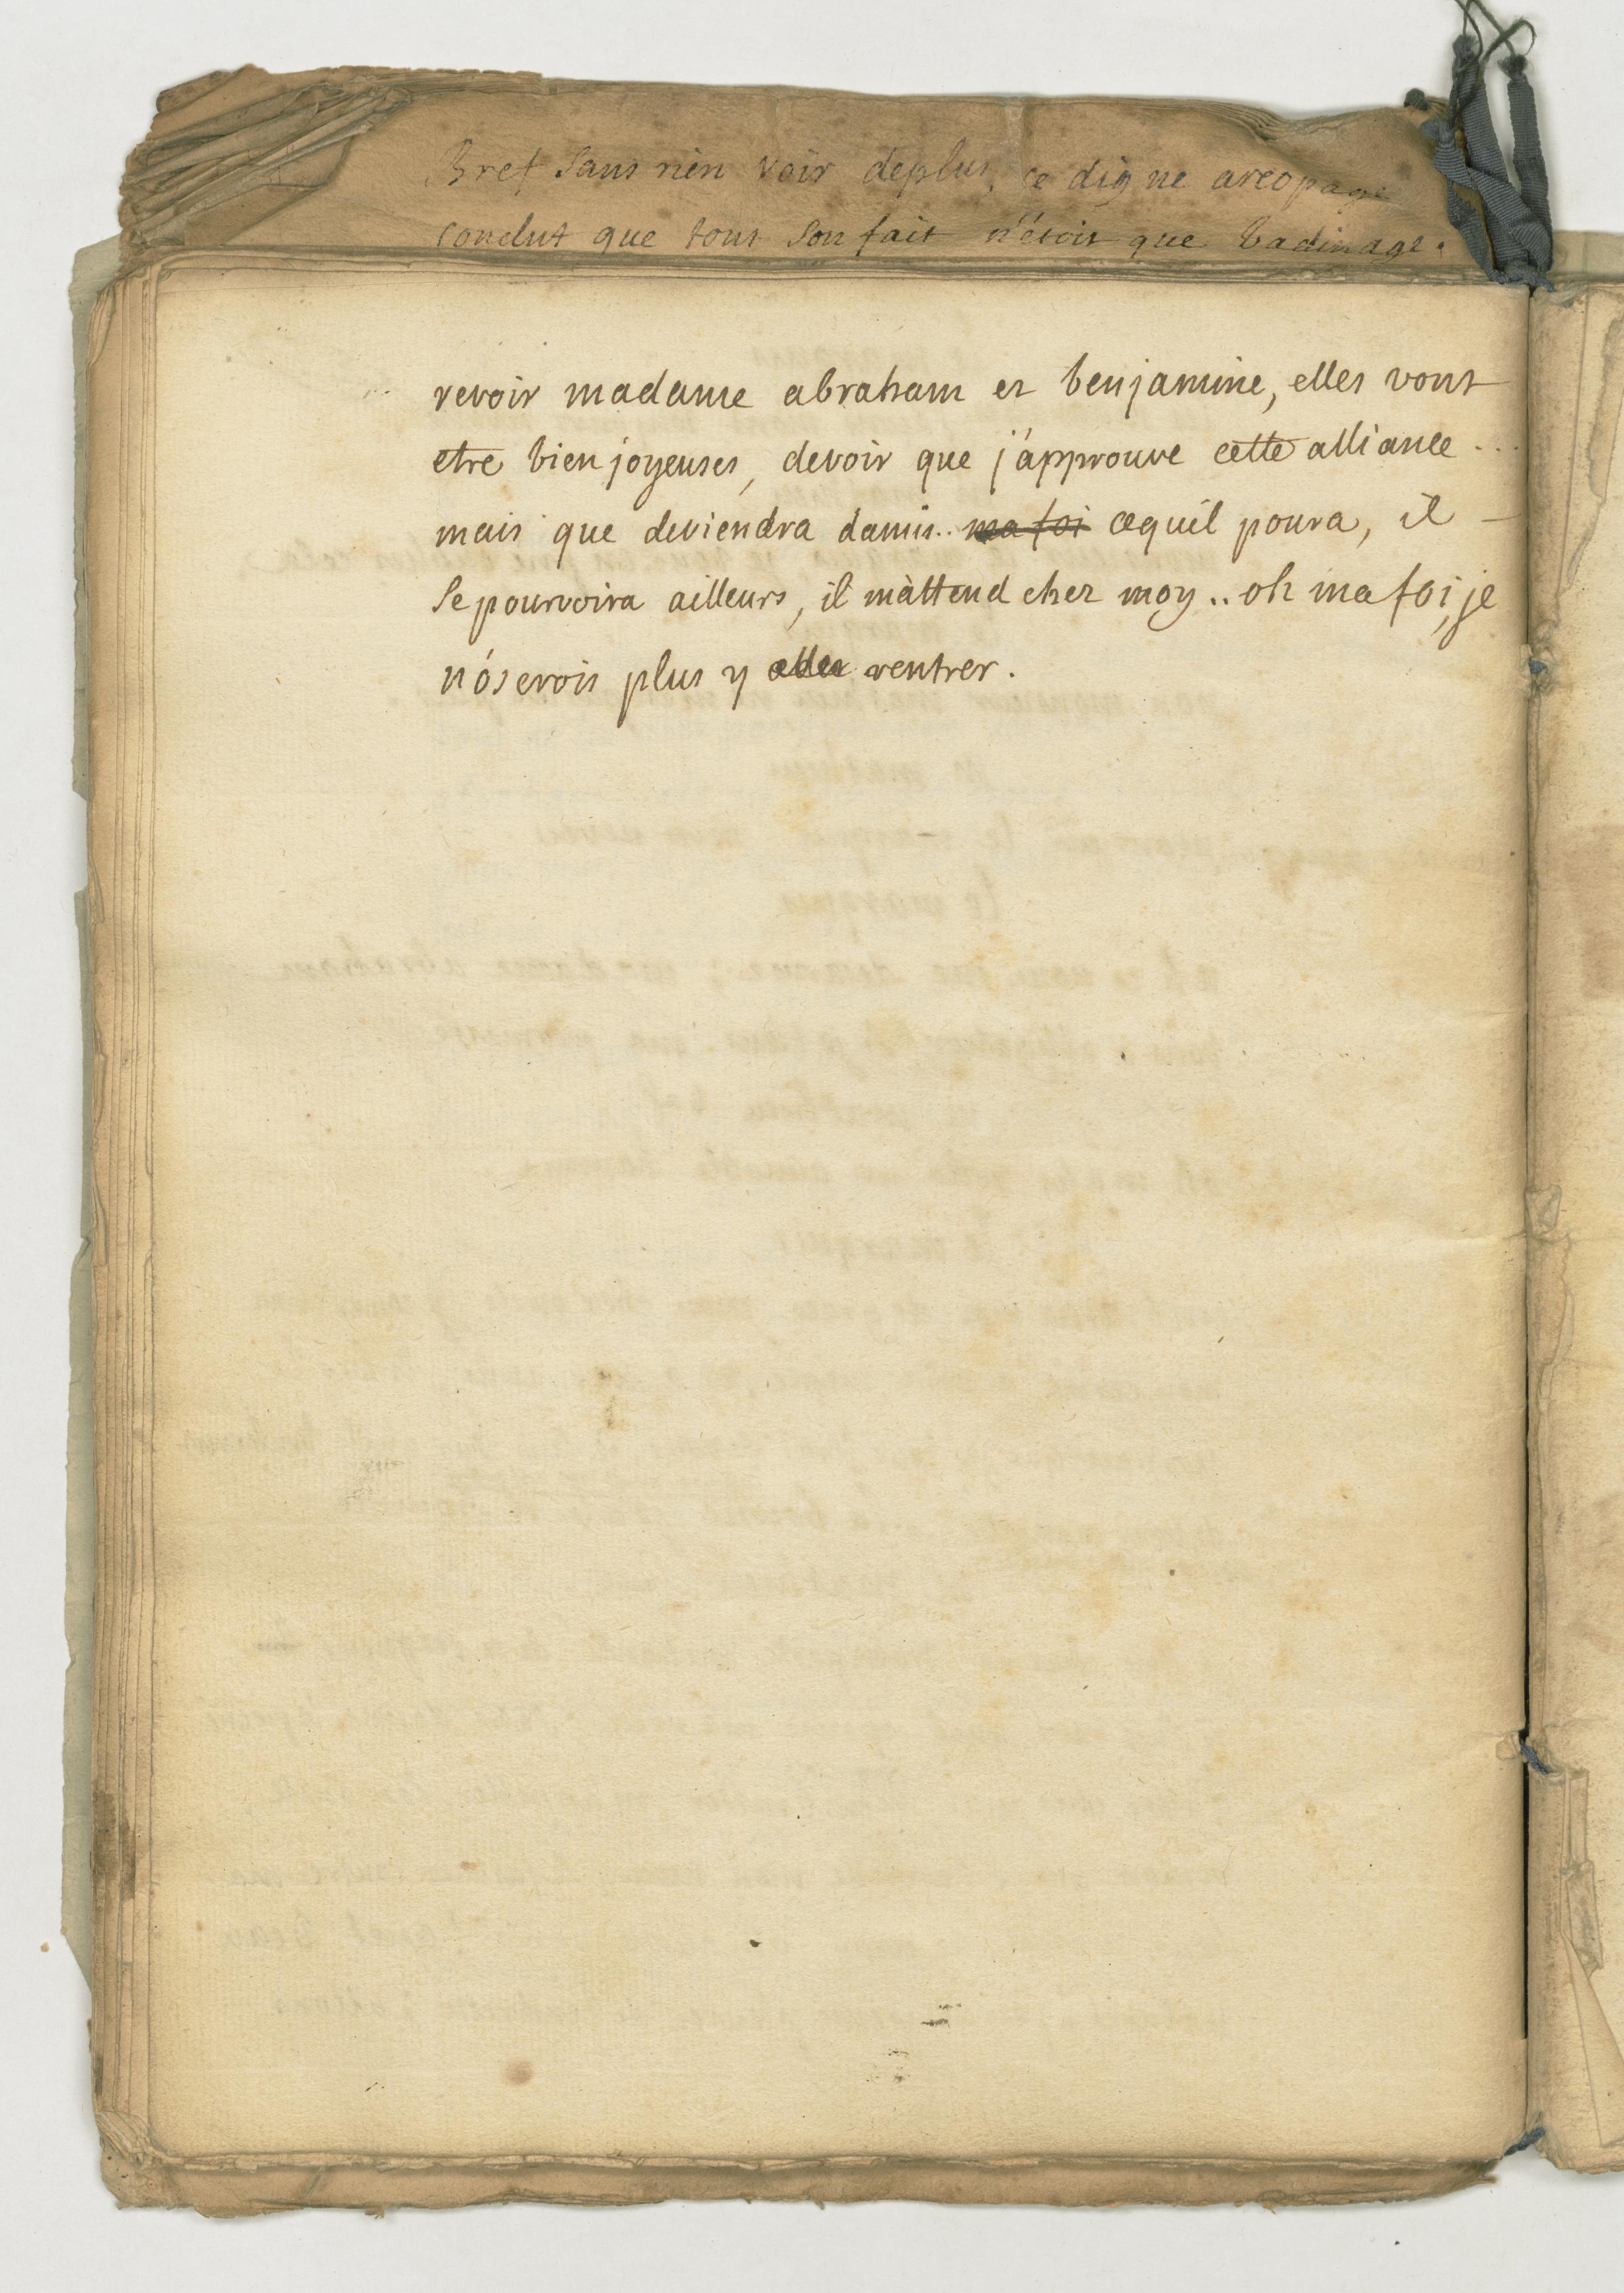 Bref sans rien voir deplus, ce digne areopage
conclut que tout son fait n'étoit que badinage.
revoir madame abraham et benjamine, elles vont
etre bien joyeuses, devoir que j'approuve cette alliance ...
mais que deviendra damis.. ma foi cequil poura, il -
Se pourvoira ailleurs, il m'attend chez moy .. oh ma foi, je
n'oserois plus y aller rentrer.